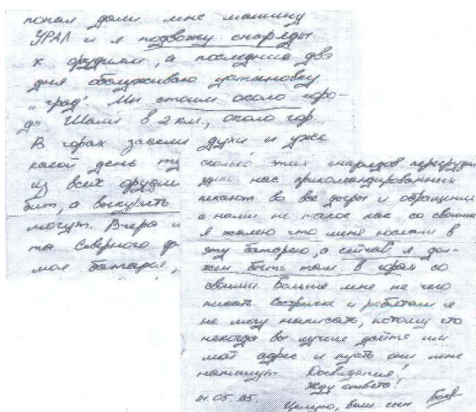 попал дали мне машину
УРАЛ и я подвожу снаряды
к орудиям, а последние два
дня обслуживаю установку
"град". Мы стоим около горо-
да Шали в 2 км., около гор.
В горах засели духи и уже
какой день
из всех орудий
бьют, а выкурить
могут. Вчера и
та Северного
моя батарея,
сколько этих снарядов перегрузил
нас прикомандированных
пихают во все дыры и обращение
с нами не такое как со своими
я жалею что меня послали в
эту батарею, а сейчас я дол-
жен быть там в горах со
своими. Больше мне не чего
писать. и ребятам я
не могу написать, потому что
некогда вы лучше дайте им
мой адрес и пусть они мне
напишут. Досвидания!
Жду ответа!
21.05.95. Целую, ваш сын